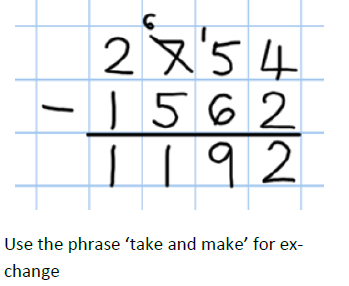 6
2 7 '5 4
- 1 5 6 2
1 1 9 2
Use the phrase ‘take and make’ for ex-
change